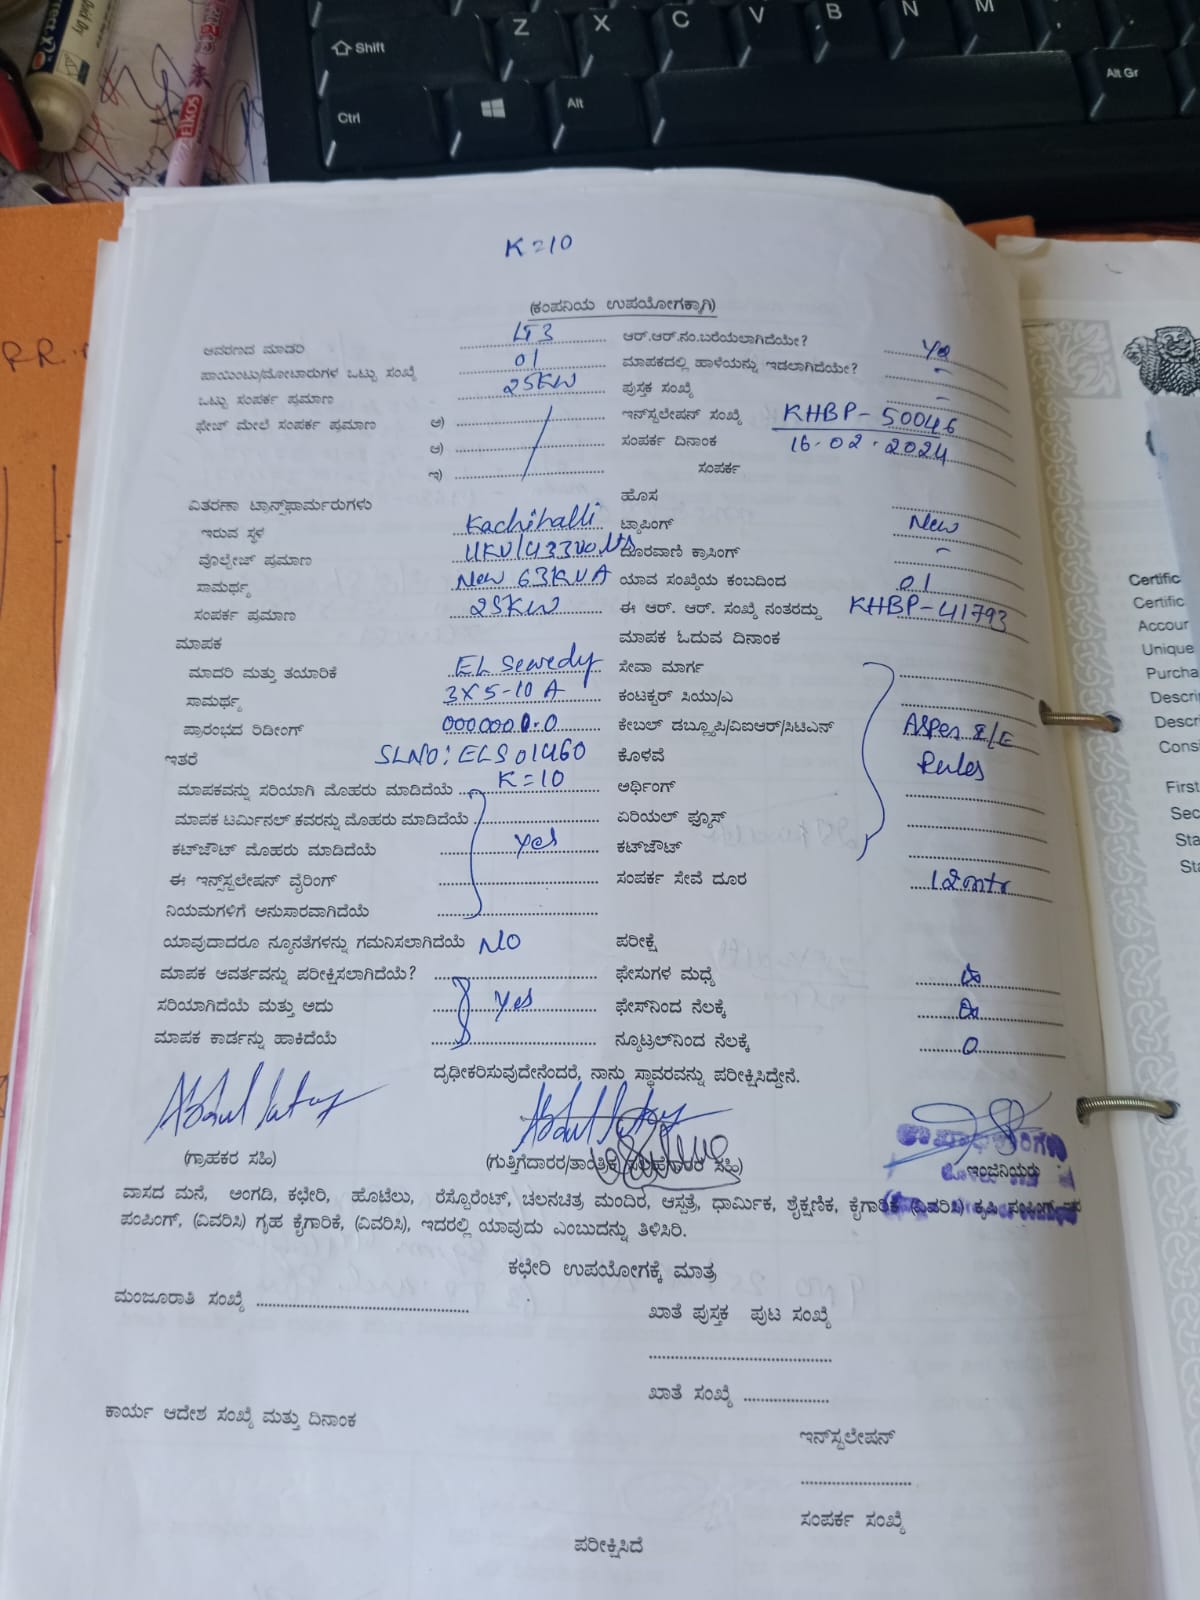 Shift
Z X C V B N M
Ctrl
Alt
Alt Gr
Elkos
K=10
(ಕಂಪನಿಯ ಉಪಯೋಗಕ್ಕಾಗಿ)
ಆವರಣದ ಮಾದರಿ LT3 ಆರ್.ಆರ್.ನಂ.ಬರೆಯಲಾಗಿದೆಯೇ? Yes
ಪಾಯಿಂಟು/ಮೋಟಾರುಗಳ ಒಟ್ಟು ಸಂಖ್ಯೆ 01 ಮಾಪಕದಲ್ಲಿ ಹಾಳೆಯನ್ನು ಇಡಲಾಗಿದೆಯೇ? -
ಒಟ್ಟು ಸಂಪರ್ಕ ಪ್ರಮಾಣ 25KW ಪುಸ್ತಕ ಸಂಖ್ಯೆ -
ಫೇಜ್ ಮೇಲೆ ಸಂಪರ್ಕ ಪ್ರಮಾಣ ಅ) ಇನ್‌ಸ್ಟಲೇಷನ್ ಸಂಖ್ಯೆ KHBP-50046
ಆ) ಸಂಪರ್ಕ ದಿನಾಂಕ 16-02-2024
ಇ) ಸಂಪರ್ಕ
ವಿತರಣಾ ಟ್ರಾನ್ಸ್‌ಫಾರ್ಮರುಗಳು ಹೊಸ
ಇರುವ ಸ್ಥಳ Kachihalli ಟ್ಯಾಪಿಂಗ್ New
ವೋಲ್ಟೇಜ್ ಪ್ರಮಾಣ 11KV/433Volts ದೂರವಾಣಿ ಕ್ರಾಸಿಂಗ್ -
ಸಾಮರ್ಥ್ಯ New 63KVA ಯಾವ ಸಂಖ್ಯೆಯ ಕಂಬದಿಂದ 01
ಸಂಪರ್ಕ ಪ್ರಮಾಣ 25KW ಈ ಆರ್. ಆರ್. ಸಂಖ್ಯೆ ನಂತರದ್ದು KHBP-41793
ಮಾಪಕ ಮಾಪಕ ಓದುವ ದಿನಾಂಕ
ಮಾದರಿ ಮತ್ತು ತಯಾರಿಕೆ EL Sewedy ಸೇವಾ ಮಾರ್ಗ
ಸಾಮರ್ಥ್ಯ 3X5-10 A ಕಂಟಕ್ಟರ್ ಸಿಯು/ಎ
ಪ್ರಾರಂಭದ ರಿಡೀಂಗ್ 0000000.0 ಕೇಬಲ್ ಡಬ್ಲ್ಯೂಪಿ/ವಿಐಆರ್/ಸಿಟಿಎಸ್ ASper I/E
ಇತರೆ SLNO: ELS01460 ಕೊಳವೆ Rules
ಮಾಪಕವನ್ನು ಸರಿಯಾಗಿ ಮೊಹರು ಮಾಡಿದೆಯೆ K=10 ಅರ್ಥಿಂಗ್
ಮಾಪಕ ಟರ್ಮಿನಲ್ ಕವರನ್ನು ಮೊಹರು ಮಾಡಿದೆಯೆ ಏರಿಯಲ್ ಫ್ಯೂಸ್
ಕಟ್‌ಔಟ್ ಮೊಹರು ಮಾಡಿದೆಯೆ Yes ಕಟ್‌ಔಟ್
ಈ ಇನ್‌ಸ್ಟಲೇಷನ್ ವೈರಿಂಗ್ ಸಂಪರ್ಕ ಸೇವೆ ದೂರ 12mtr
ನಿಯಮಗಳಿಗೆ ಅನುಸಾರವಾಗಿದೆಯೆ
ಯಾವುದಾದರೂ ನ್ಯೂನತೆಗಳನ್ನು ಗಮನಿಸಲಾಗಿದೆಯೆ NO ಪರೀಕ್ಷೆ
ಮಾಪಕ ಆವರ್ತವನ್ನು ಪರೀಕ್ಷಿಸಲಾಗಿದೆಯೆ? ಫೇಸುಗಳ ಮಧ್ಯೆ
ಸರಿಯಾಗಿದೆಯೆ ಮತ್ತು ಅದು Yes ಫೇಸ್‌ನಿಂದ ನೆಲಕ್ಕೆ
ಮಾಪಕ ಕಾರ್ಡನ್ನು ಹಾಕಿದೆಯೆ ನ್ಯೂಟ್ರಲ್‌ನಿಂದ ನೆಲಕ್ಕೆ 0
ದೃಢೀಕರಿಸುವುದೇನೆಂದರೆ, ನಾನು ಸ್ಥಾವರವನ್ನು ಪರೀಕ್ಷಿಸಿದ್ದೇನೆ.
(ಗ್ರಾಹಕರ ಸಹಿ) (ಗುತ್ತಿಗೆದಾರರ/ತಾಂತ್ರಿಕ ಸಹಿ) ಇಂಜಿನಿಯರು
ವಾಸದ ಮನೆ, ಅಂಗಡಿ, ಕಛೇರಿ, ಹೊಟೆಲು, ರೆಸ್ಟೊರೆಂಟ್, ಚಲನಚಿತ್ರ ಮಂದಿರ, ಆಸ್ಪತ್ರೆ, ಧಾರ್ಮಿಕ, ಶೈಕ್ಷಣಿಕ, ಕೈಗಾರಿಕೆ (ವಿವರಿಸಿ) ಕೃಷಿ ಪಂಪಿಂಗ್
ಪಂಪಿಂಗ್, (ವಿವರಿಸಿ) ಗೃಹ ಕೈಗಾರಿಕೆ, (ವಿವರಿಸಿ), ಇದರಲ್ಲಿ ಯಾವುದು ಎಂಬುದನ್ನು ತಿಳಿಸಿರಿ.
ಕಛೇರಿ ಉಪಯೋಗಕ್ಕೆ ಮಾತ್ರ
ಮಂಜೂರಾತಿ ಸಂಖ್ಯೆ
ಖಾತೆ ಪುಸ್ತಕ ಪುಟ ಸಂಖ್ಯೆ
ಖಾತೆ ಸಂಖ್ಯೆ
ಕಾರ್ಯ ಆದೇಶ ಸಂಖ್ಯೆ ಮತ್ತು ದಿನಾಂಕ
ಇನ್‌ಸ್ಟಲೇಷನ್
ಸಂಪರ್ಕ ಸಂಖ್ಯೆ
ಪರೀಕ್ಷಿಸಿದೆ
Certific
Certific
Accour
Unique
Purcha
Descri
Descr
Consi
First
Sec
Sta
Sta